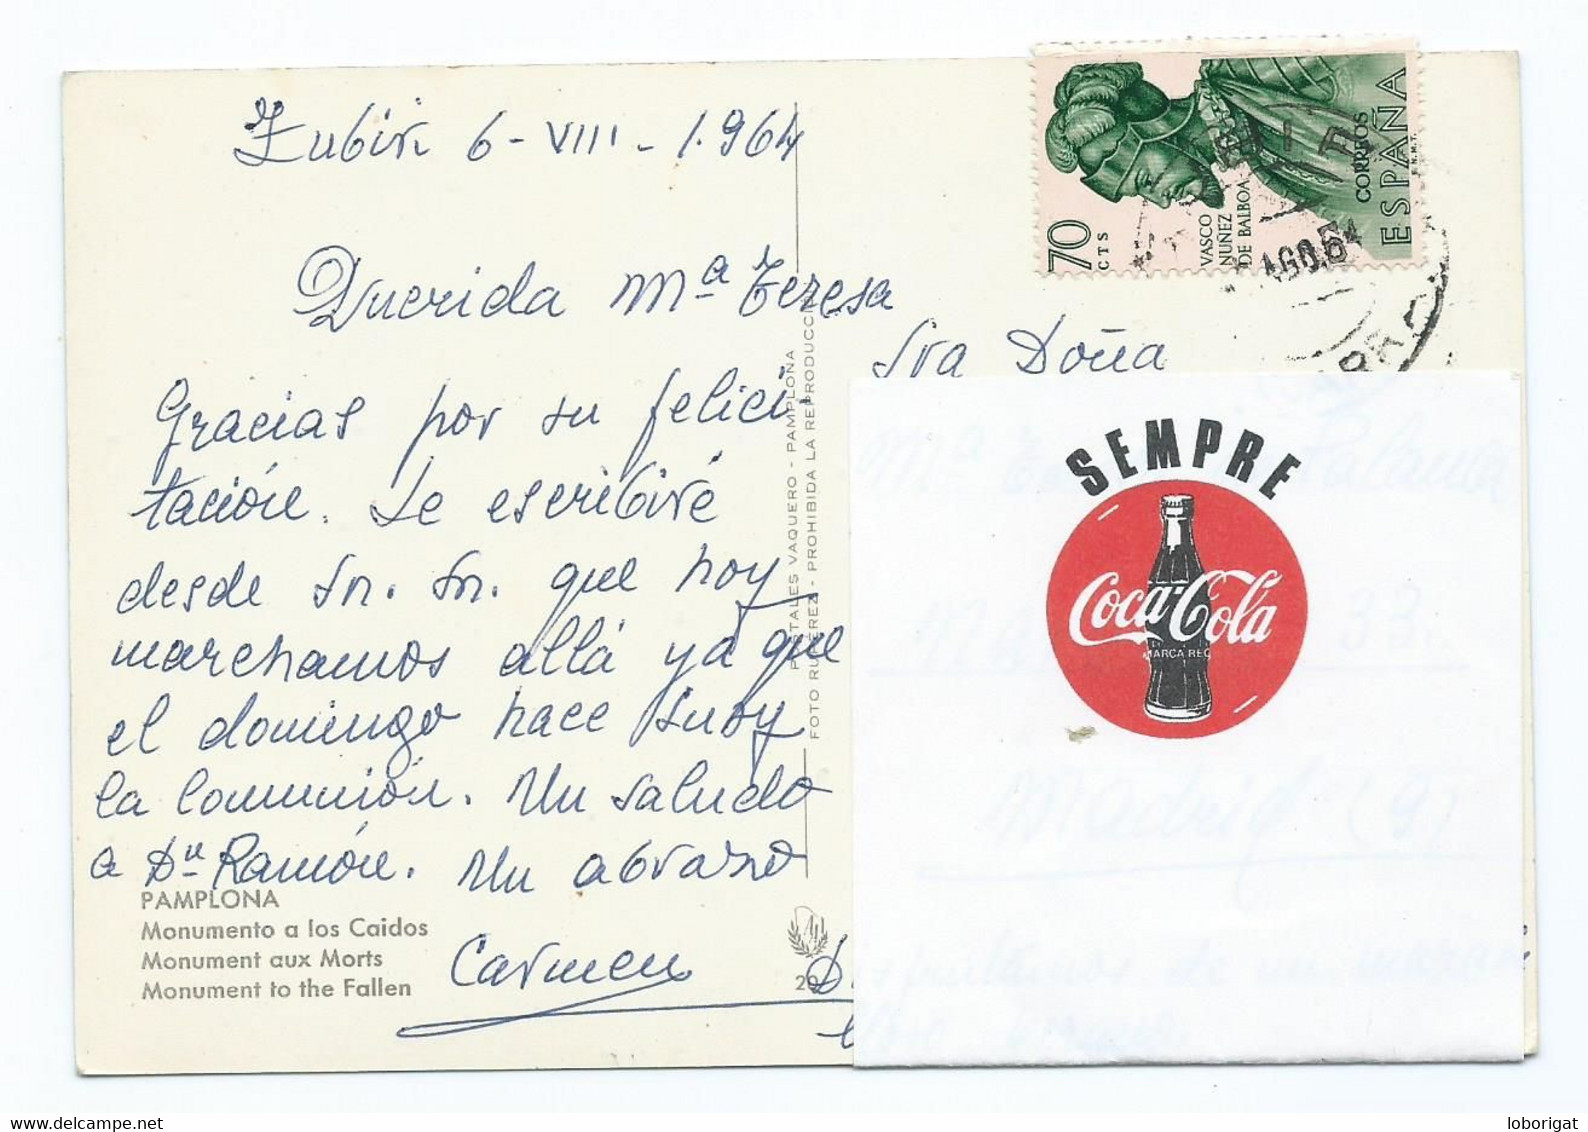 Zubiri 6-VIII-1.964
Querida Mª Teresa
Gracias por su felici-
tación. Le escribiré
desde Sn. Sn. que hoy
marchamos allá ya que
el domingo hace Susy
la Comunión. Un saludo
a Dn Ramón. Un abrazo
Carmen
PAMPLONA
Monumento a los Caidos
Monument aux Morts
Monument to the Fallen
POSTALES VAQUERO - PAMPLONA
FOTO RUPÉREZ - PROHIBIDA LA REPRODUCCIÓN
20
70
CTS
VASCO
NUÑEZ
DE BALBOA
CORREOS
ESPAÑA
F.N.M.T.
AGO.64
Sra Doña
Mª
33
Madrid (9)
SEMPRE
Coca-Cola
MARCA REG
loborigat